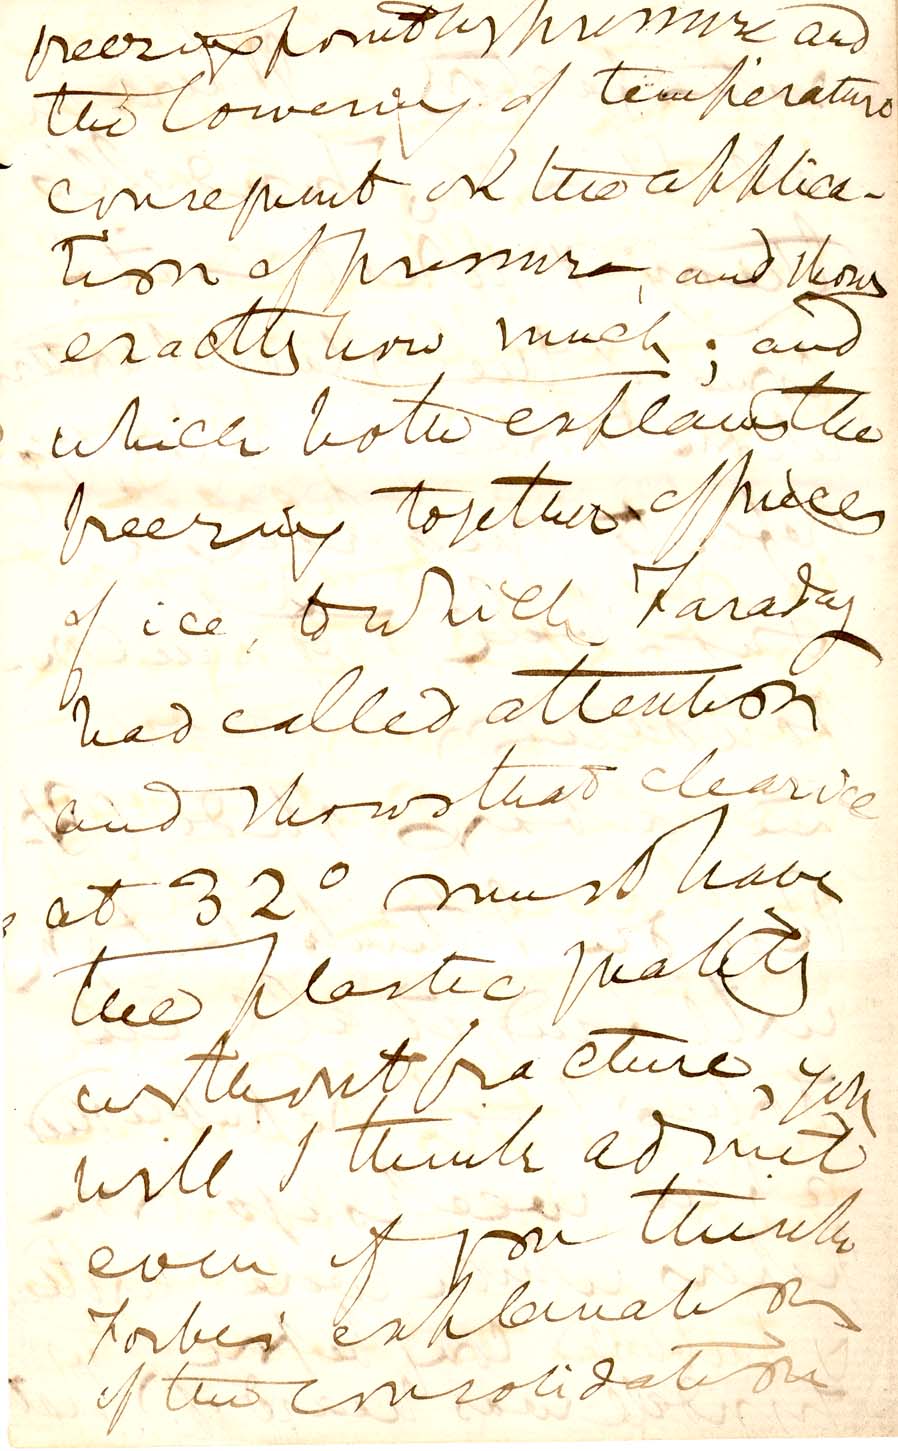 freezing point by pressure and
the lowering of temperature
consequent on the applica-
tion of pressure, and shows
exactly how much; and
which both explains the
freezing together of pieces
of ice, to which Faraday
had called attention
and shows that clear ice
at 32° must have
the plastic quality
without fracture, you
will I think admit
even if you think
Forbes' explanation
of the consolidation